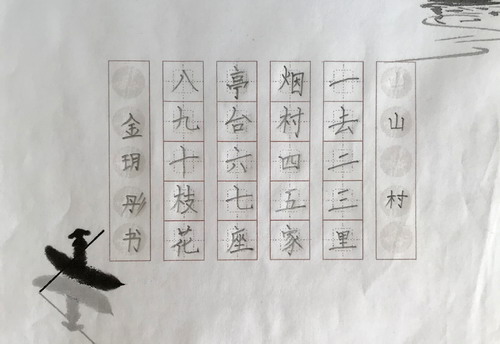 山村
一去二三里
烟村四五家
亭台六七座
八九十枝花
金玥彤书